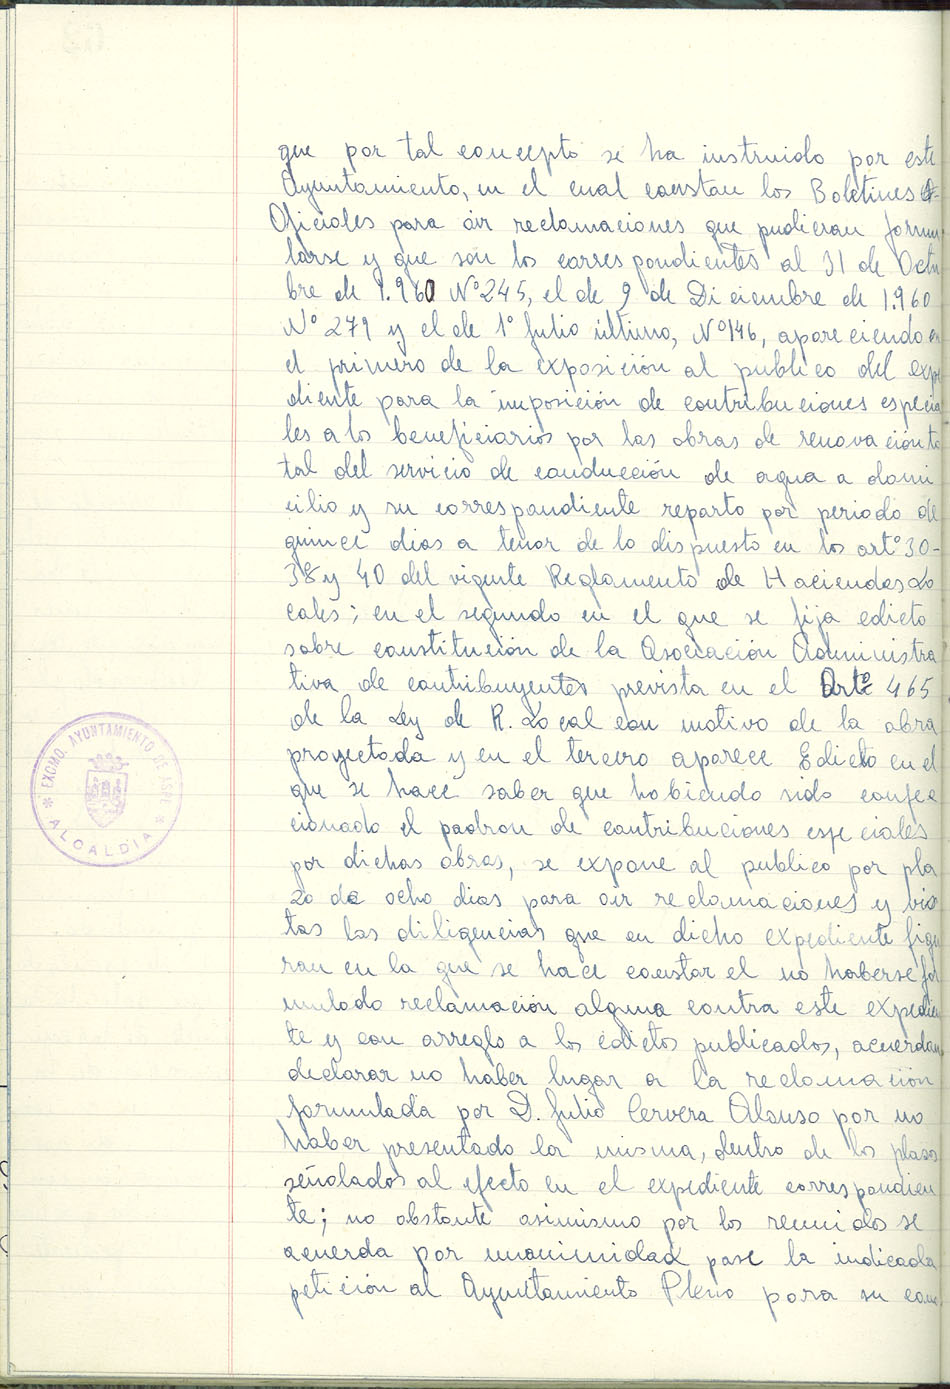 que por tal concepto se ha instruido por este
Ayuntamiento, en el cual constan los Boletines
Oficiales para oir reclamaciones que pudieran formu
larse y que son los correspondientes al 31 de Octu
bre de 1.960 Nº 245, el de 9 de Diciembre de 1.960
Nº 279 y el de 1º Julio último, Nº 146, apareciendo en
el primero de la exposición al publico del expe
diente para la imposición de contribuciones especia
les a los beneficiarios por las obras de renovación to
tal del servicio de conducción de agua a domi
cilio y su correspondiente reparto por periodo de
quince dias a tenor de lo dispuesto en los artº 30-
38 y 40 del vigente Reglamento de Haciendas Lo
cales; en el segundo en el que se fija edicto
sobre constitución de la Asociación Administra
tiva de contribuyentes prevista en el Artº 465
de la Ley de R. Local con motivo de la obra
proyectada y en el tercero aparece Edicto en el
que se hace saber que habiendo sido confec
cionado el padron de contribuciones especiales
por dichas obras, se expone al publico por pla
zo de ocho dias para oir reclamaciones y vis
tas las diligencias que en dicho expediente figu
ran en la que se hace constar el no haberse for
mulado reclamación alguna contra este expedien
te y con arreglo a los edictos publicados, acuerdan
declarar no haber lugar a la reclamación
formulada por D. Julio Cervera Alonso por no
haber presentado la misma, dentro de los plazos
señalados al efecto en el expediente correspondien
te; no obstante asimismo por los reunidos se
acuerda por unanimidad pase la indicada
petición al Ayuntamiento Pleno para su cono
EXCMO. AYUNTAMIENTO DE ASPE
* ALCALDIA *